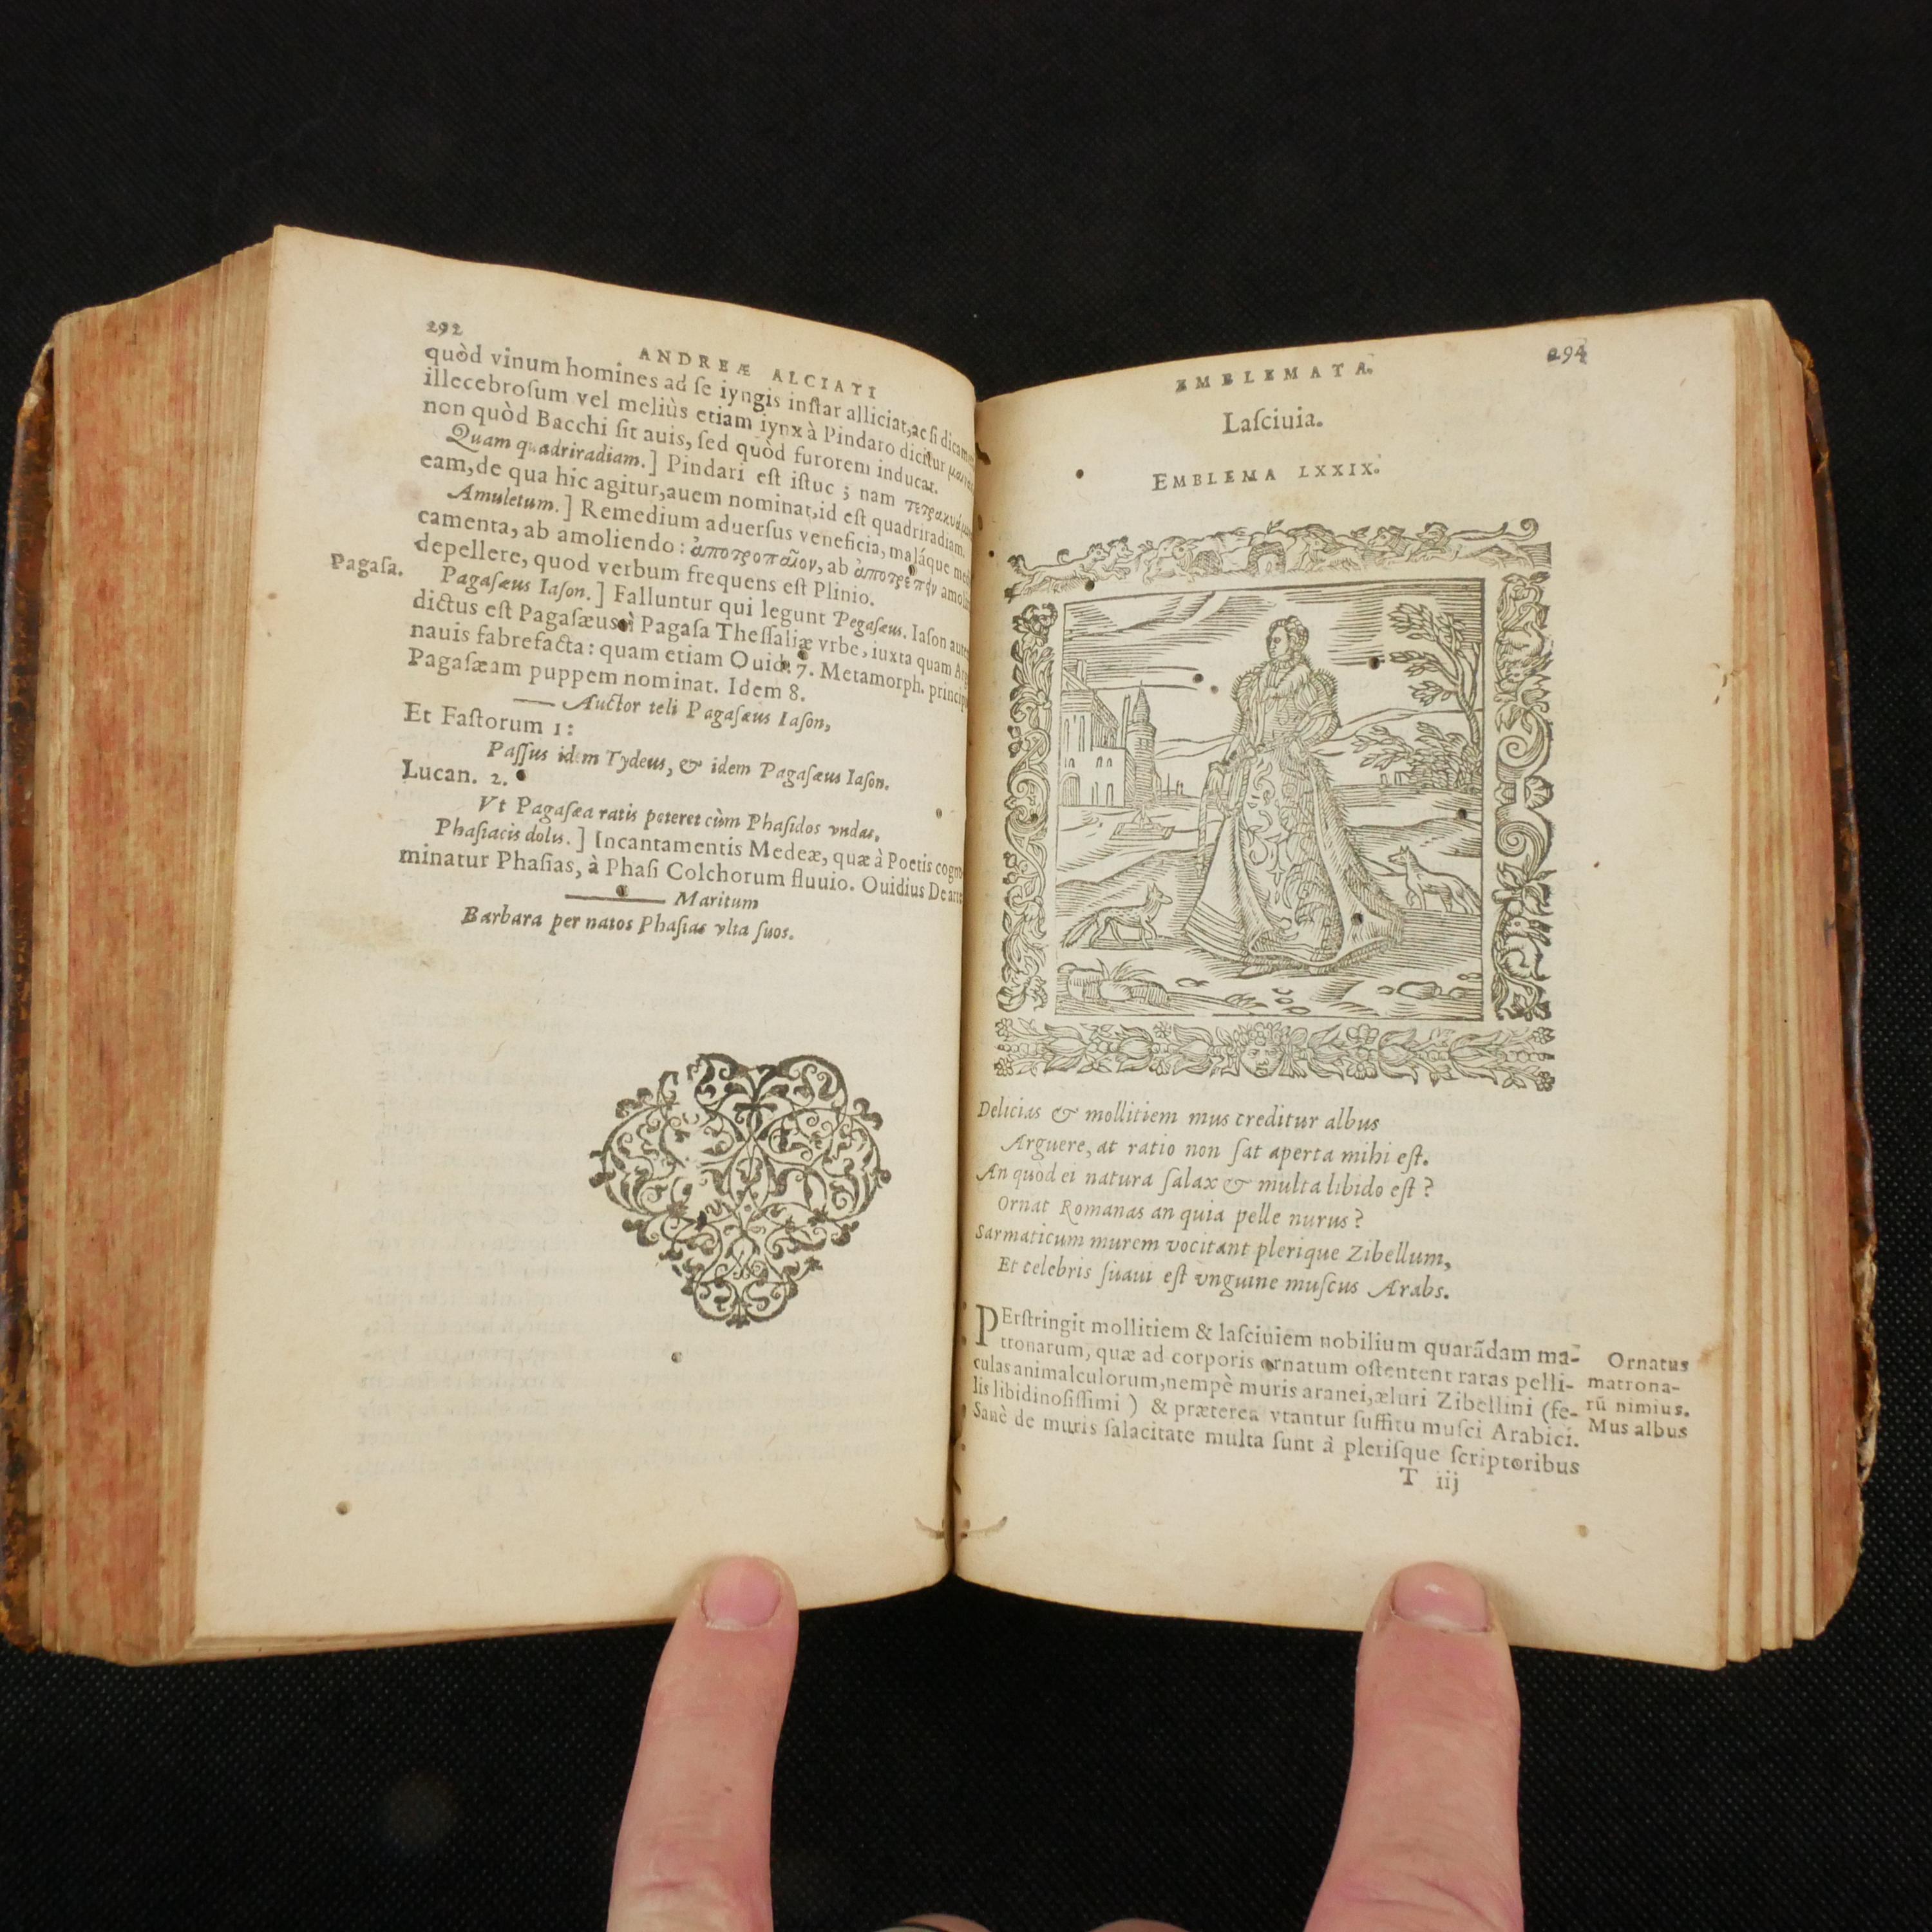 292
ANDREÆ ALCIATI
quòd vinum homines ad ſe iyngis inſtar alliciat, ac ſi
illecebroſum vel meliùs etiam iynx à Pindaro dicitur
non quòd Bacchi ſit auis, ſed quòd furorem inducat.
Quam quadriradiam.] Pindari eſt iſtuc; nam
eam, de qua hic agitur, auem nominat, id eſt quadriradiam.
Amuletum.] Remedium aduerſus veneficia, maláque
camenta, ab amoliendo: ἀποτροπαῖον, ab
depellere, quod verbum frequens eſt Plinio.
Pagaſa.
Pagaſæus Iaſon.] Falluntur qui legunt Pegaſæus. Iaſon
dictus eſt Pagaſæus à Pagaſa Theſſaliæ vrbe, iuxta quam
nauis fabrefacta: quam etiam Ouid. 7. Metamorph.
Pagaſæam puppem nominat. Idem 8.
Auctor teli Pagaſæus Iaſon,
Et Faſtorum 1:
Paſſus idem Tydeus, & idem Pagaſæus Iaſon.
Lucan. 2.
Vt Pagaſæa ratis peteret cùm Phaſidos vndas,
Phaſiacis dolis.] Incantamentis Medeæ, quæ à Poetis
minatur Phaſias, à Phaſi Colchorum fluuio. Ouidius De
Maritum
Barbara per natos Phaſias vlta ſuos.
EMBLEMATA.
294
Laſciuia.
EMBLEMA LXXIX.
Delicias & mollitiem mus creditur albus
Arguere, at ratio non ſat aperta mihi eſt.
An quòd ei natura ſalax & multa libido eſt?
Ornat Romanas an quia pelle nurus?
Sarmaticum murem vocitant plerique Zibellum,
Et celebris ſuaui eſt vnguine muſcus Arabs.
PErſtringit mollitiem & laſciuiem nobilium quarūdam ma-
tronarum, quæ ad corporis ornatum oſtentent raras pelli-
culas animalculorum, nempè muris aranei, æluri Zibellini (fe-
lis libidinoſiſſimi) & præterea vtantur ſuffitu muſci Arabici.
Sanè de muris ſalacitate multa ſunt à pleriſque ſcriptoribus
Ornatus
matrona-
rū nimius.
Mus albus
T iij